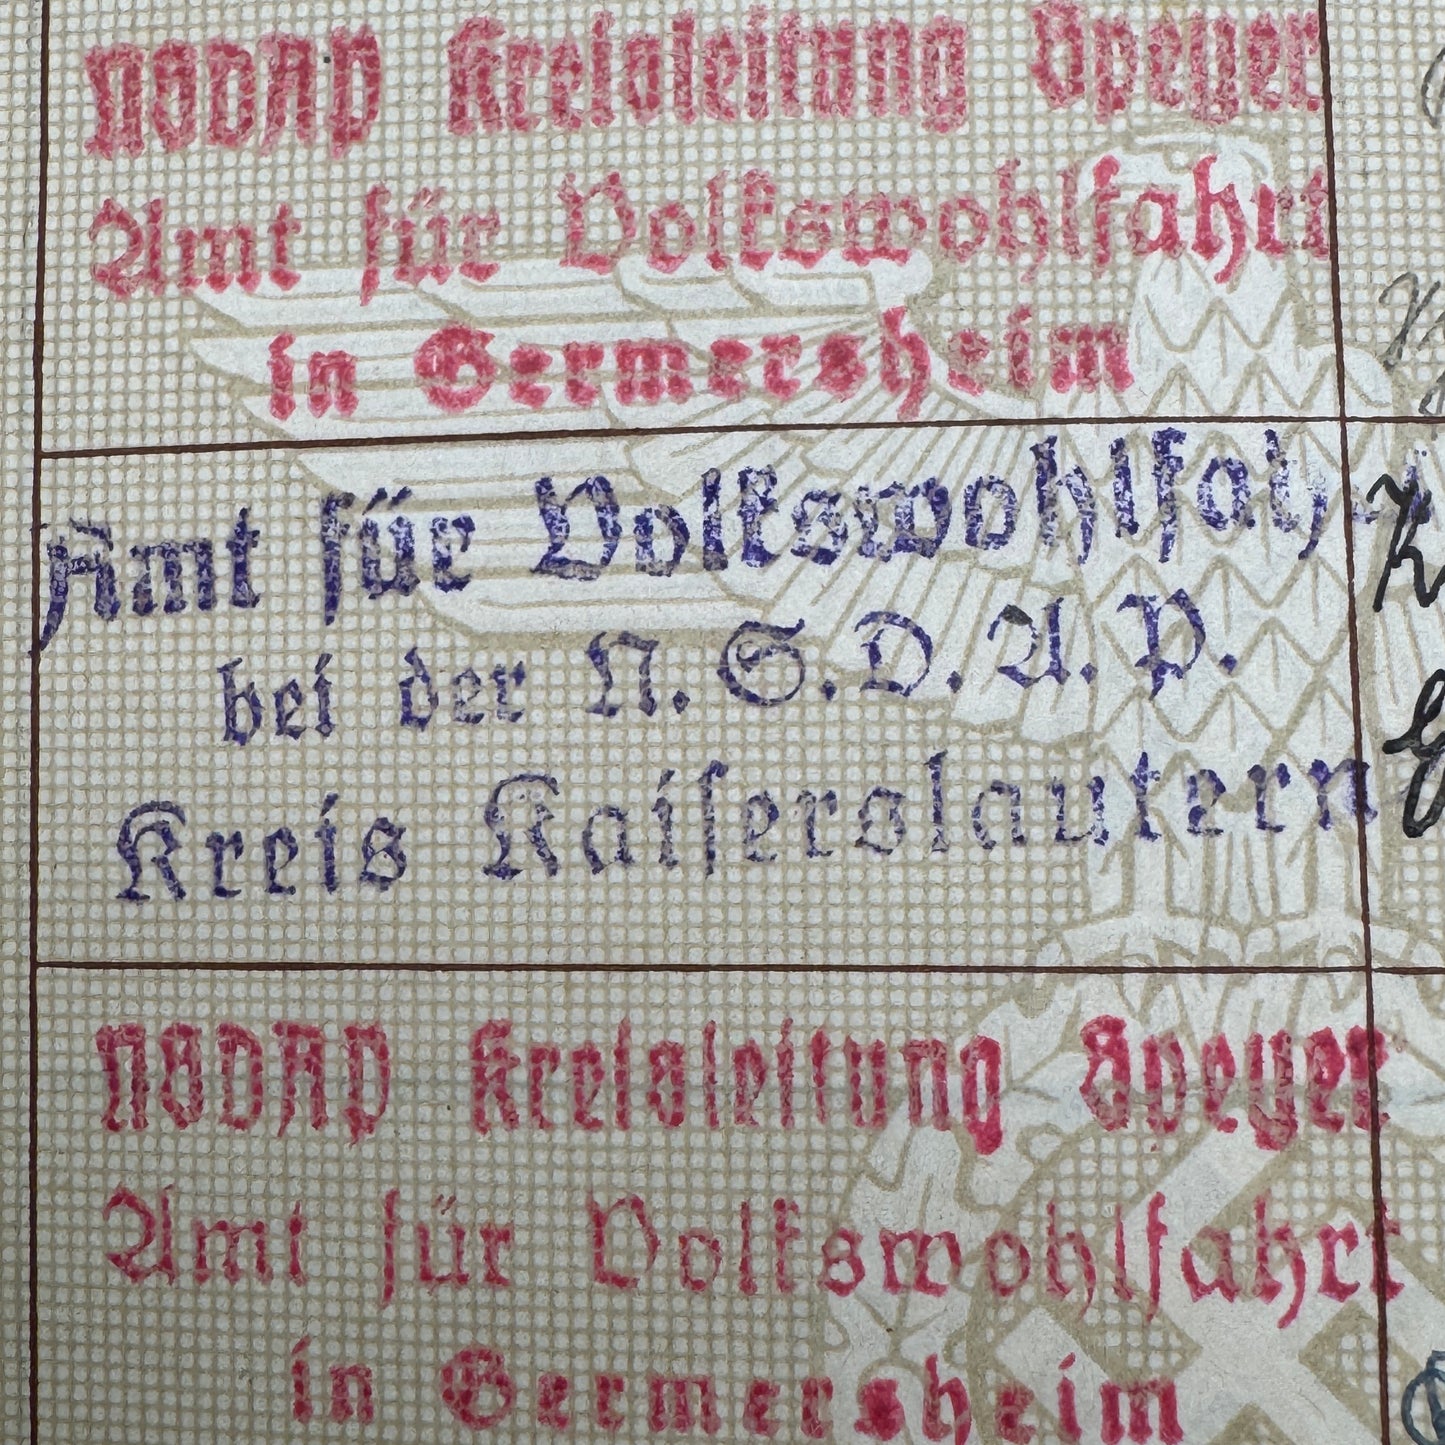 NSDAP Kreisleitung Speyer
Amt für Volkswohlfahrt
in Germersheim
Amt für Volkswohlfahrt
bei der N.S.D.A.P.
Kreis Kaiserslautern
NSDAP Kreisleitung Speyer
Amt für Volkswohlfahrt
in Germersheim